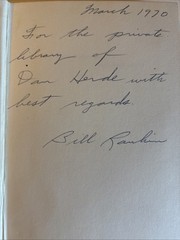 March 1970
For the private
library of
Dan Herde with
best regards.
Bill Rankin